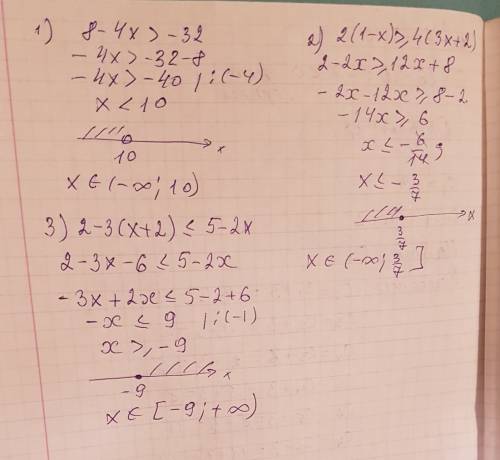 1) 8-4x>-32
-4x>-32-8
-4x>-40 | :(-4)
x<10
10 x
x∈(-∞; 10)
2) 2(1-x)≥4(3x+2)
2-2x≥12x+8
-2x-12x≥8-2
-14x≥6
x≤-6/14;
x≤-3/7
3/7 x
x∈(-∞; 3/7]
3) 2-3(x+2)≤5-2x
2-3x-6≤5-2x
-3x+2x≤5-2+6
-x≤9 | :(-1)
x≥-9
-9 x
x∈[-9; +∞)